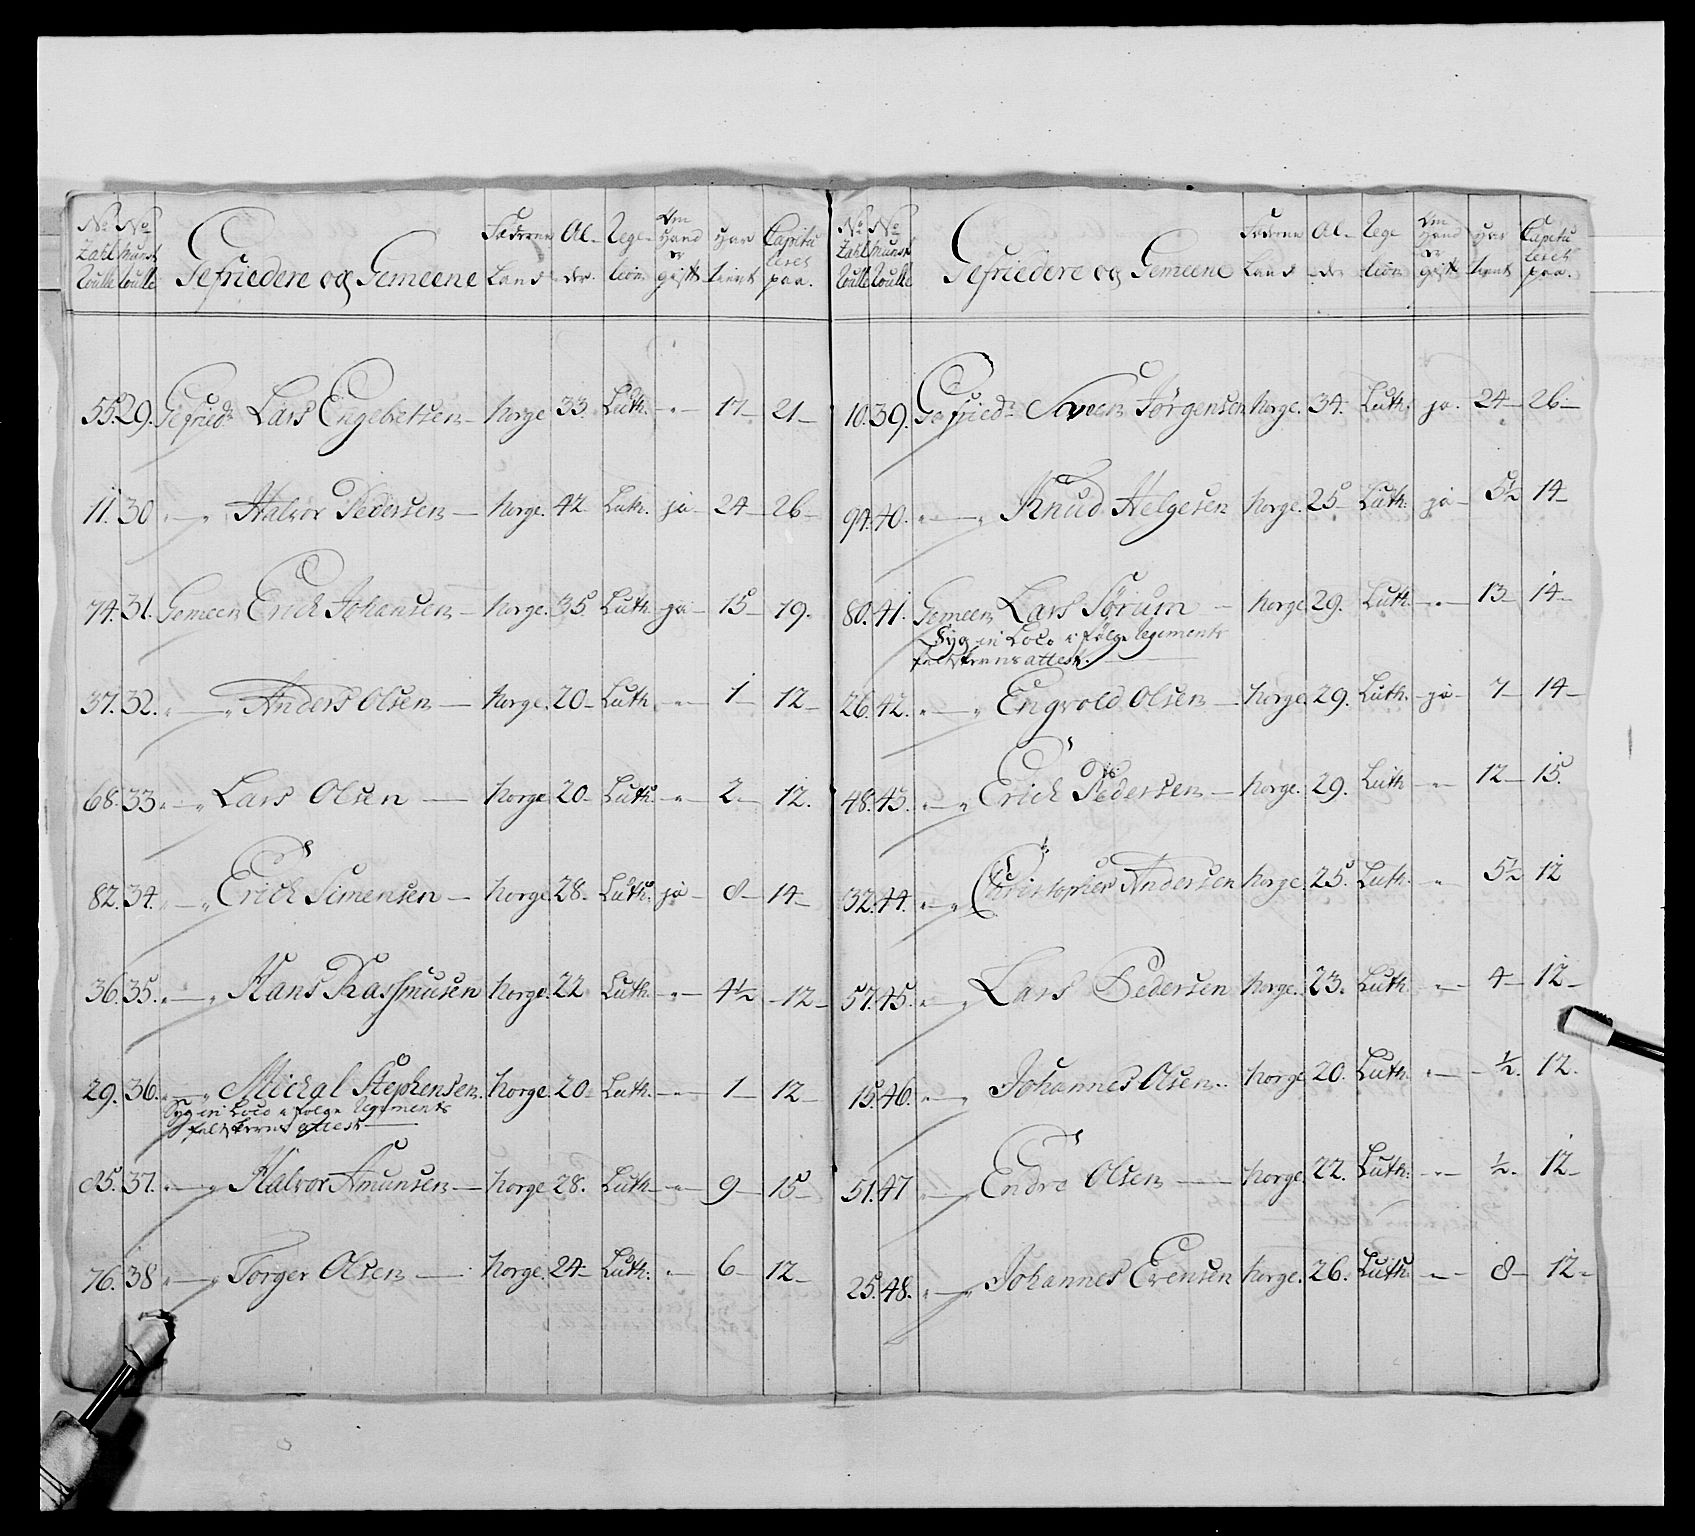 No Zahl Roulle | No Munst Roulle | Gefriedere og Gemeene | Fæderne Land | Al- der. | Rege- lion | Om Hand er gift | Har tient | Capitu leret paa.
55. 29. Gefriedr Lars Engebretsen Norge 33. Luth. - " - 17 21
11. 30 " Halvor Pedersen Norge. 42 Luth. ja 24 26
74. 31. Gemeen Erich Johansen Norge. 35 Luth. ja 15 19.
37. 32. " Anders Olsen Norge. 20 Luth. - " - 1 12
68. 33 " Lars Olsen Norge 20 Luth. - " - 2 12.
82. 34. " Erich Simensen Norge. 28. Luth. ja 8 14
36. 35. " Hans Rasmusen Norge. 22 Luth. - " - 4½ 12
29. 36. " Michal Stephensen Norge. 20 Luth. - " - 1 12
Syg in Loco i følge Regiments
feltskerens attest
85. 37. " Halvor Amunsen Norge 28. Luth. - " - 9 15
76. 38 " Torger Olsen Norge. 24 Luth. " 6 12
No Zahl Roulle | No Munst Roulle | Gefriedere og Gemeene | Fæderne Land | Al- der | Rege lion | Om Hand er gift | Har tient | Capitu leret paa.
10. 39. Gefriedr Svven Jørgensen Norge. 34. Luth. ja. 24 26
94. 40. " Knud Helgesen Norge. 25 Luth. ja 5½ 14
80. 41. Gemeen Lars Sørum Norge 29. Luth. - " - 13 14
Syg in Loco i følge Regiments
feltskerens attest.
26. 42. " Engvold Olsen Norge. 29. Luth. ja 7 14
48. 43. " Erich Pedersen Norge. 29. Luth - " - 12 15.
32. 44. " Christopher Andersen Norge. 25. Luth. " 5½ 12
57. 45. " Lars Pedersen Norge. 23. Luth " 4 12
15. 46. " Johannes Olsen Norge 20. Luth. " ½. 12.
51. 47 " Endre Olsen Norge. 22. Luth. - " - ½. 12
25. 48. " Johannes Evensen Norge. 26. Luth. - " - 8 12